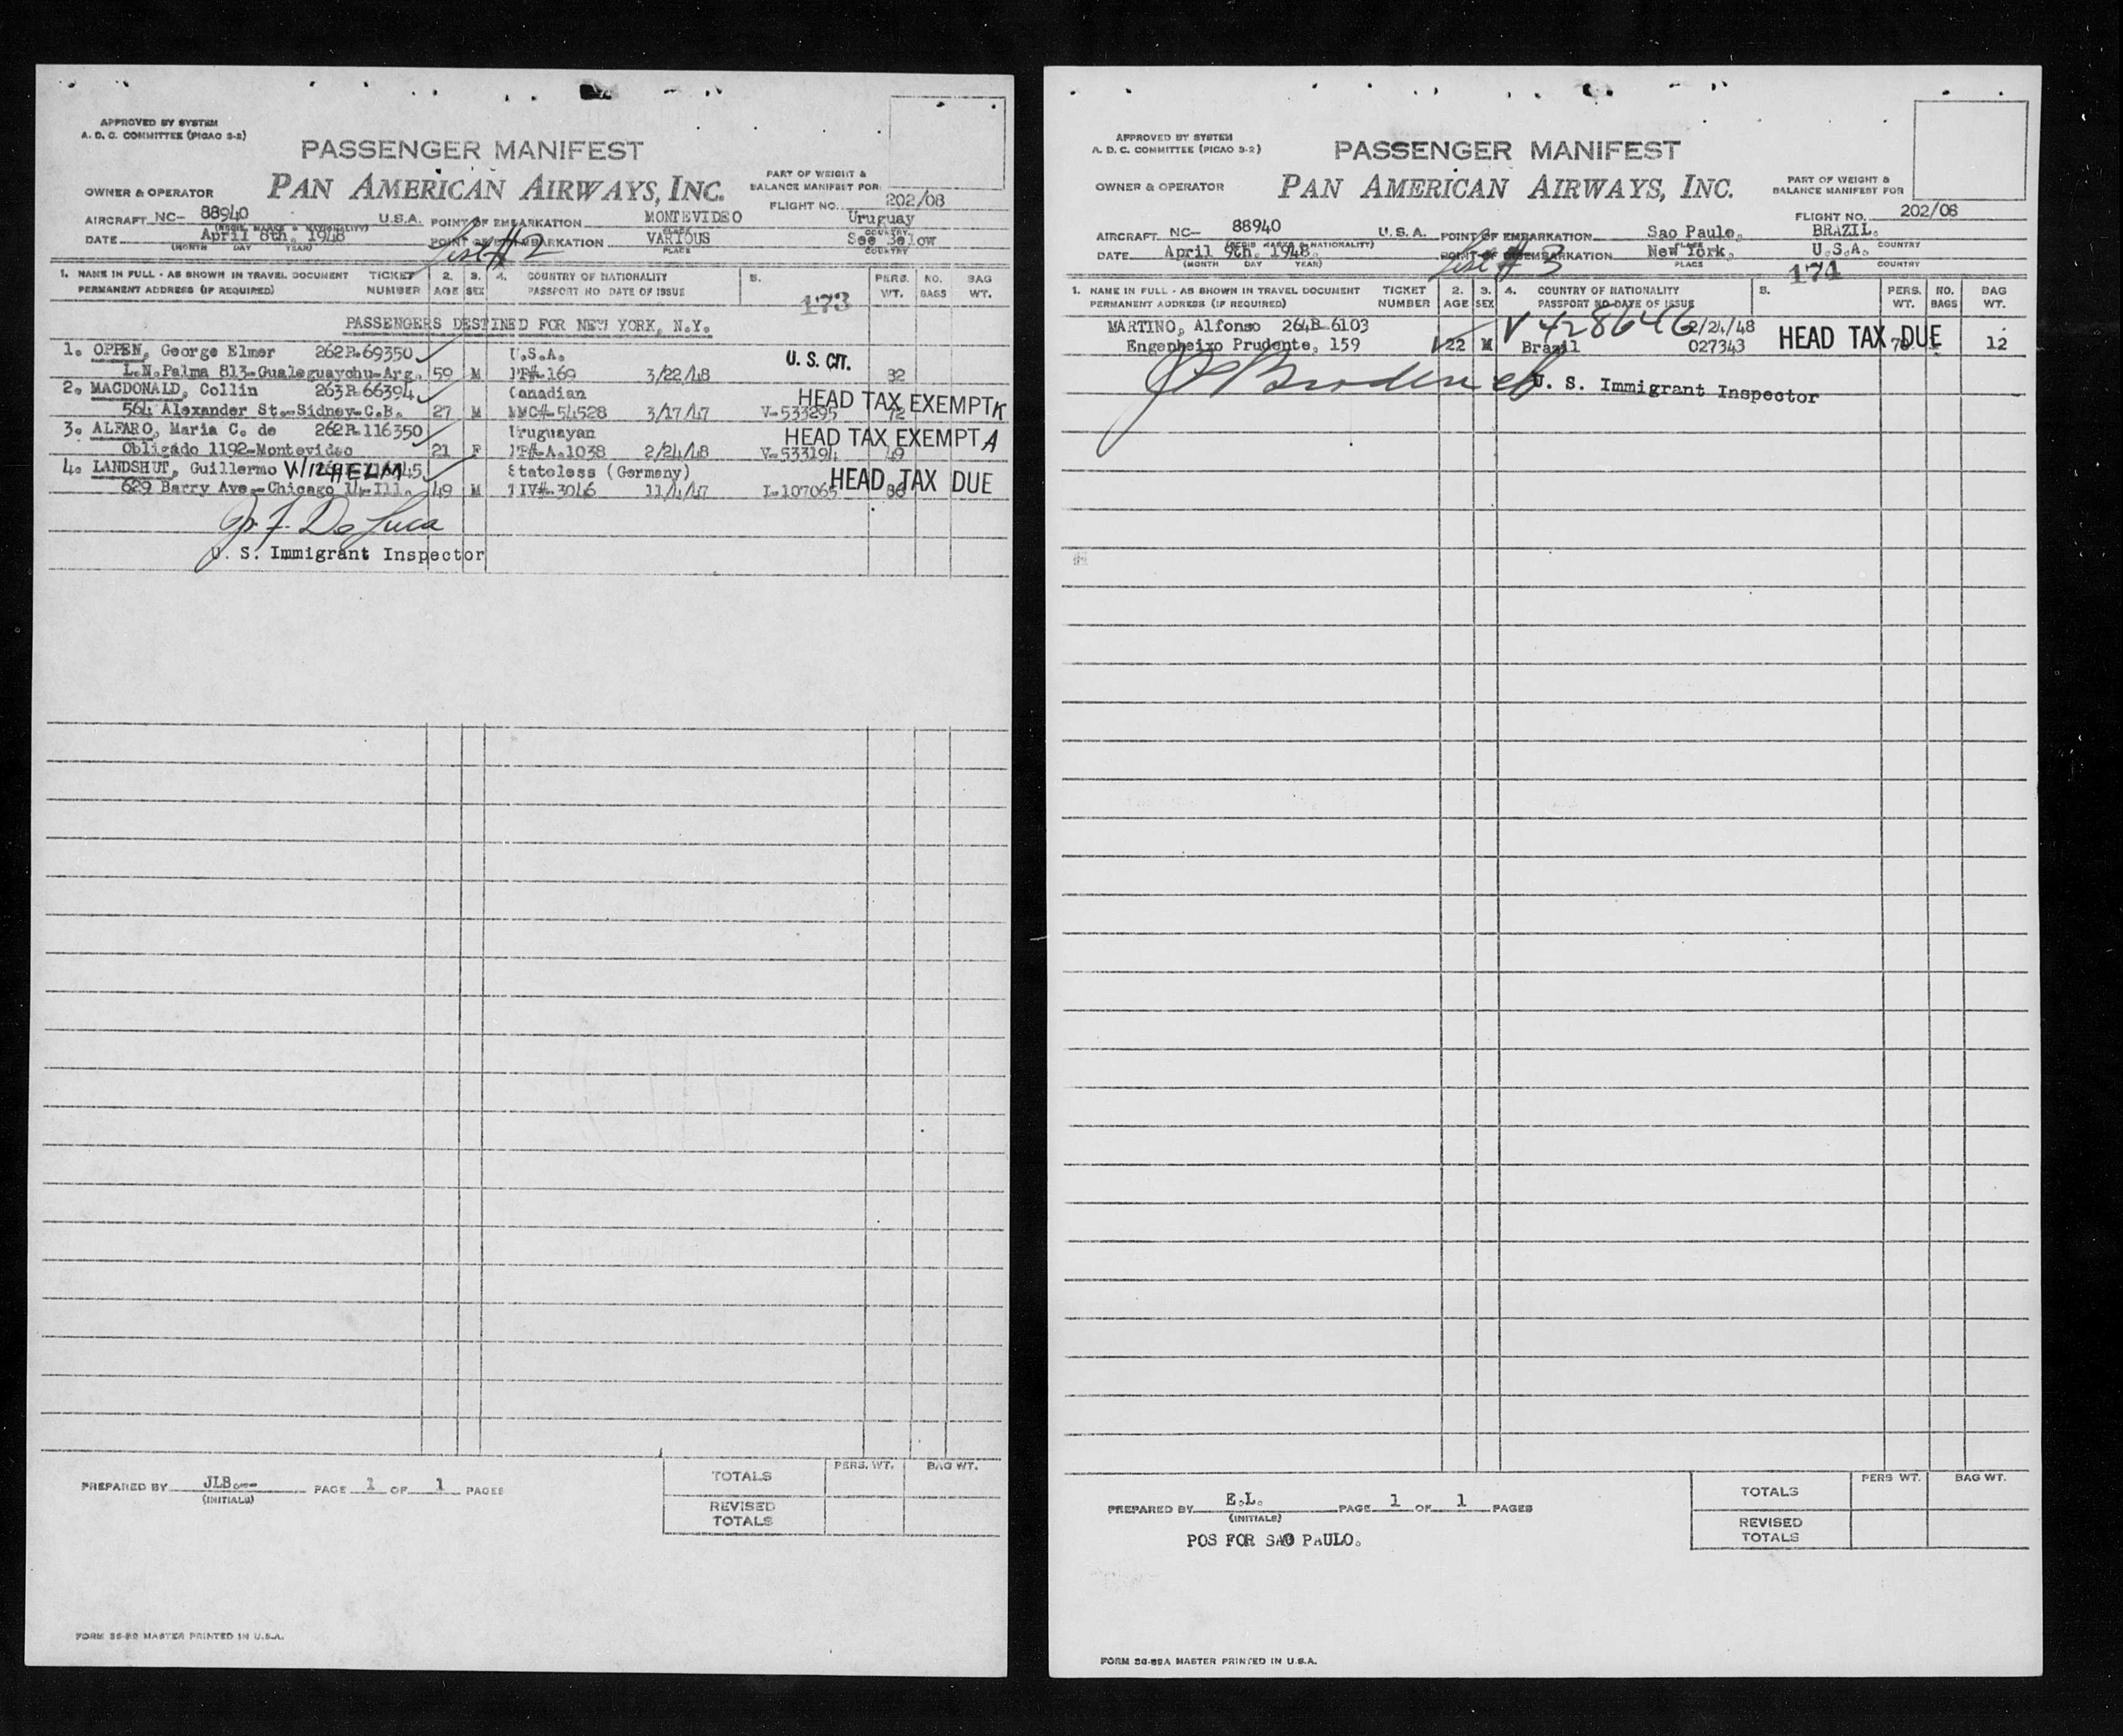 APPROVED BY SYSTEM
A. D. C. COMMITTEE (PICAO S-2)
PASSENGER MANIFEST
OWNER & OPERATOR PAN AMERICAN AIRWAYS, INC.
PART OF WEIGHT &
BALANCE MANIFEST FOR
FLIGHT NO. 202/08
AIRCRAFT NC- 88940 U.S.A. POINT OF EMBARKATION MONTEVIDEO Uruguay
(REGIS. MARKS & NATIONALITY) PLACE COUNTRY
DATE April 8th, 1948 POINT OF DISEMBARKATION VARIOUS See Below
(MONTH DAY YEAR) PLACE COUNTRY
List #2
1. NAME IN FULL - AS SHOWN IN TRAVEL DOCUMENT TICKET 2. 3. 4. COUNTRY OF NATIONALITY 5. PERS. NO. BAG
PERMANENT ADDRESS (IF REQUIRED) NUMBER AGE SEX PASSPORT NO DATE OF ISSUE 173 WT. BAGS WT.
PASSENGERS DESTINED FOR NEW YORK, N.Y.
1. OPPEN, George Elmer 262R-69350 U.S.A. U. S. CIT.
L.N.Palma 813-Gualeguaychu-Arg. 59 M PP#-169 3/22/48 82
2. MACDONALD, Collin 263R-66394 Canadian HEAD TAX EXEMPT K
564 Alexander St.-Sidney-C.B. 27 M MMC#-54528 3/17/47 V-533295 72
3. ALFARO, Maria C. de 262R-116350 Uruguayan HEAD TAX EXEMPT A
Obligado 1192-Montevideo 21 F PP#-A.1038 2/24/48 V-533194 49
4. LANDSHUT, Guillermo WILHELM Stateless (Germany) HEAD TAX DUE
629 Barry Ave.-Chicago 14-Ill. 49 M 3046 11/4/47 I-107065 86
J. F. De Luca
U. S. Immigrant Inspector
PERS. WT. BAG WT.
TOTALS
REVISED
TOTALS
PREPARED BY JLB.-- PAGE 1 OF 1 PAGES
(INITIALS)
FORM 36-89 MASTER PRINTED IN U.S.A.
APPROVED BY SYSTEM
A. D. C. COMMITTEE (PICAO S-2)
PASSENGER MANIFEST
OWNER & OPERATOR PAN AMERICAN AIRWAYS, INC.
PART OF WEIGHT &
BALANCE MANIFEST FOR
FLIGHT NO. 202/08
AIRCRAFT NC- 88940 U.S.A. POINT OF EMBARKATION Sao Paulo, BRAZIL.
(REGIS. MARKS & NATIONALITY) PLACE COUNTRY
DATE April 9th, 1948. POINT OF DISEMBARKATION New York, U.S.A.
(MONTH DAY YEAR) PLACE COUNTRY
List #3
1. NAME IN FULL - AS SHOWN IN TRAVEL DOCUMENT TICKET 2. 3. 4. COUNTRY OF NATIONALITY 5. PERS. NO. BAG
PERMANENT ADDRESS (IF REQUIRED) NUMBER AGE SEX PASSPORT NO DATE OF ISSUE 174 WT. BAGS WT.
MARTINO, Alfonso 264B-6103 V 428646 2/24/48 HEAD TAX DUE
Engenheiro Prudente, 159 22 M Brazil 027343 12
U. S. Immigrant Inspector
PERS WT. BAG WT.
TOTALS
REVISED
TOTALS
PREPARED BY E.L. PAGE 1 OF 1 PAGES
(INITIALS)
POS FOR SAO PAULO.
FORM 36-89A MASTER PRINTED IN U.S.A.